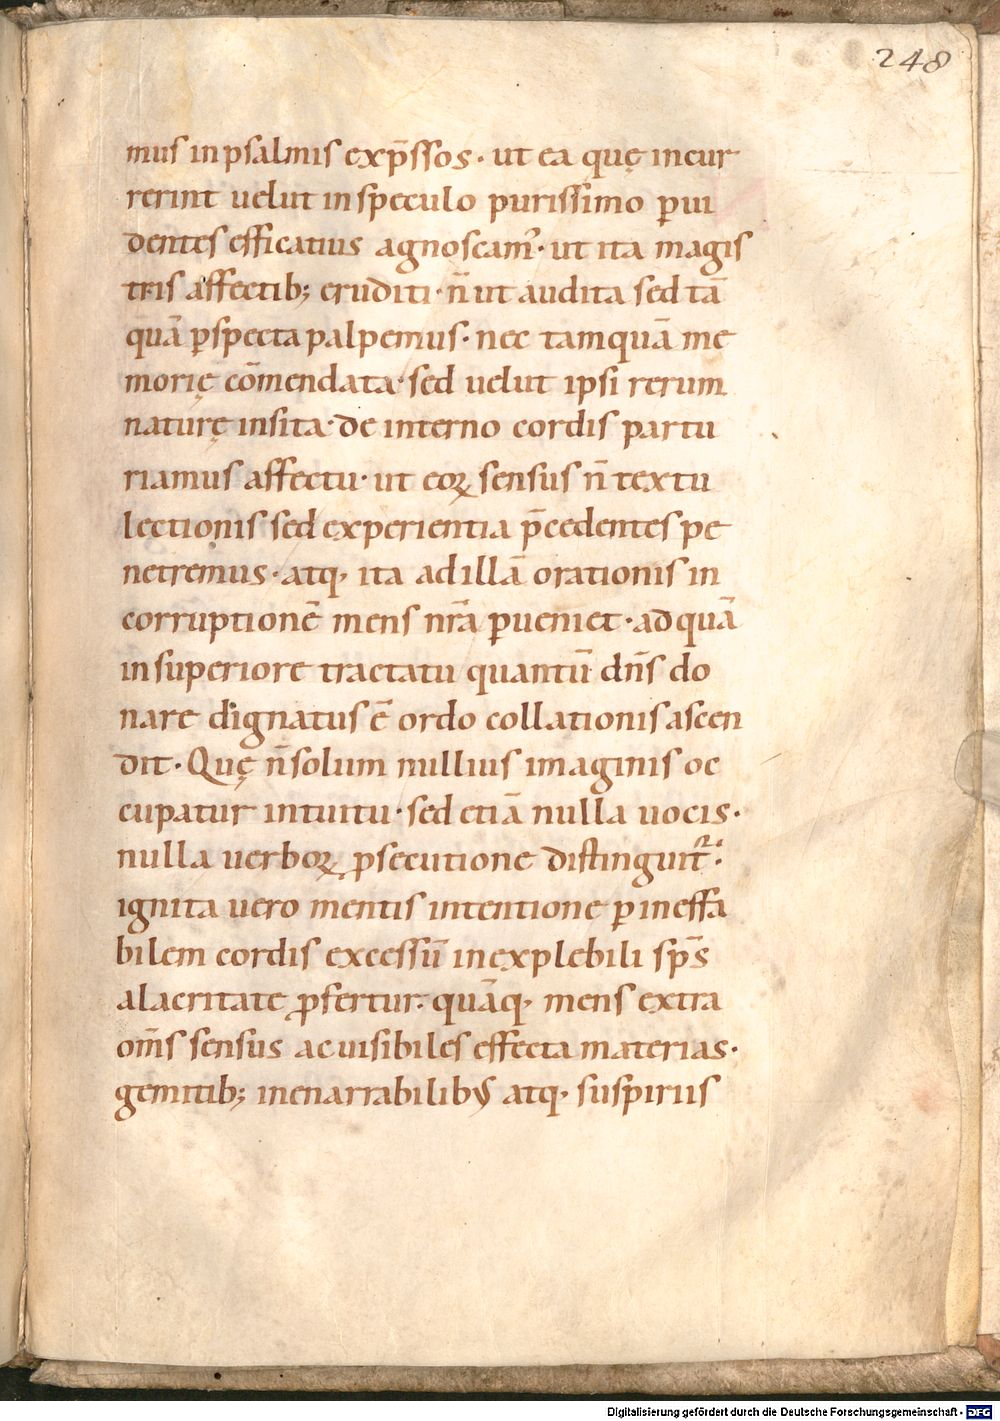 248
mus in psalmis exp̄ssos· ut ea quę incur
rerint uelut in speculo purissimo p̄ui
dentes efficatius agnoscam᷒· ut ita magis
tris affectib; eruditi· n̄ ut audita sed tā
quā p̱specta palpemus· nec tamquā me
morię cōmendata· sed uelut ipsi rerum
naturę insita· de interno cordis partu
riamus affectu· ut eoꝝ sensus n̄ textu
lectionis sed experientia p̄cedentes pe
netremus· atq· ita ad illā orationis in
corruptionē mens nr̄a ꝑueniet· ad quā
in superiore tractatu quantū dn̄s do
nare dignatus ē ordo collationis ascen
dit· Quę n̄ solum nullius imaginis oc
cupatur intuitu· sed etiā nulla uocis·
nulla uerboꝝ ꝓsecutione distinguit᷑·
ignita uero mentis intentione ꝑ ineffa
bilem cordis excessū inexplebili sp̄s
alacritate ꝓfertur· quāq· mens extra
om̄s sensus ac uisibiles effecta materias·
gemitib; inenarrabilibus atq· suspiriis
Digitalisierung gefördert durch die Deutsche Forschungsgemeinschaft - DFG